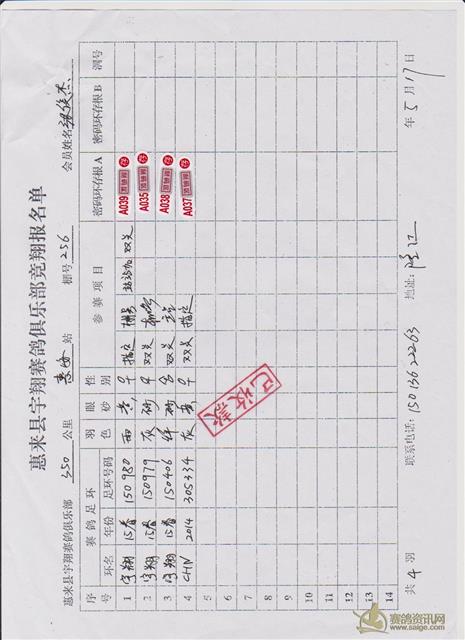 惠来县宇翔赛鸽俱乐部竞翔报名单
惠来县宇翔赛鸽俱乐部 350 公里 站 棚号 256 会员姓名
序号 赛鸽足环 羽色 眼砂 性别 参赛项目 密码环存根A 密码环存根B 洞号
环名 年份 足环号码
1 宇翔 15春 150980 雨 指定 双关 A039
2 宇翔 15春 150979 灰 砂 双关 A035
3 宇翔 15春 150406 砂 双关 A038
4 CHN 2014 305334 灰 双关 指定 A037
5
6
7
8
9
10
11
12
13
14
已收款
共 4 羽 联系电话: 15013622263 地址: 年 5 月 17 日
赛鸽资讯网
www.saige.com